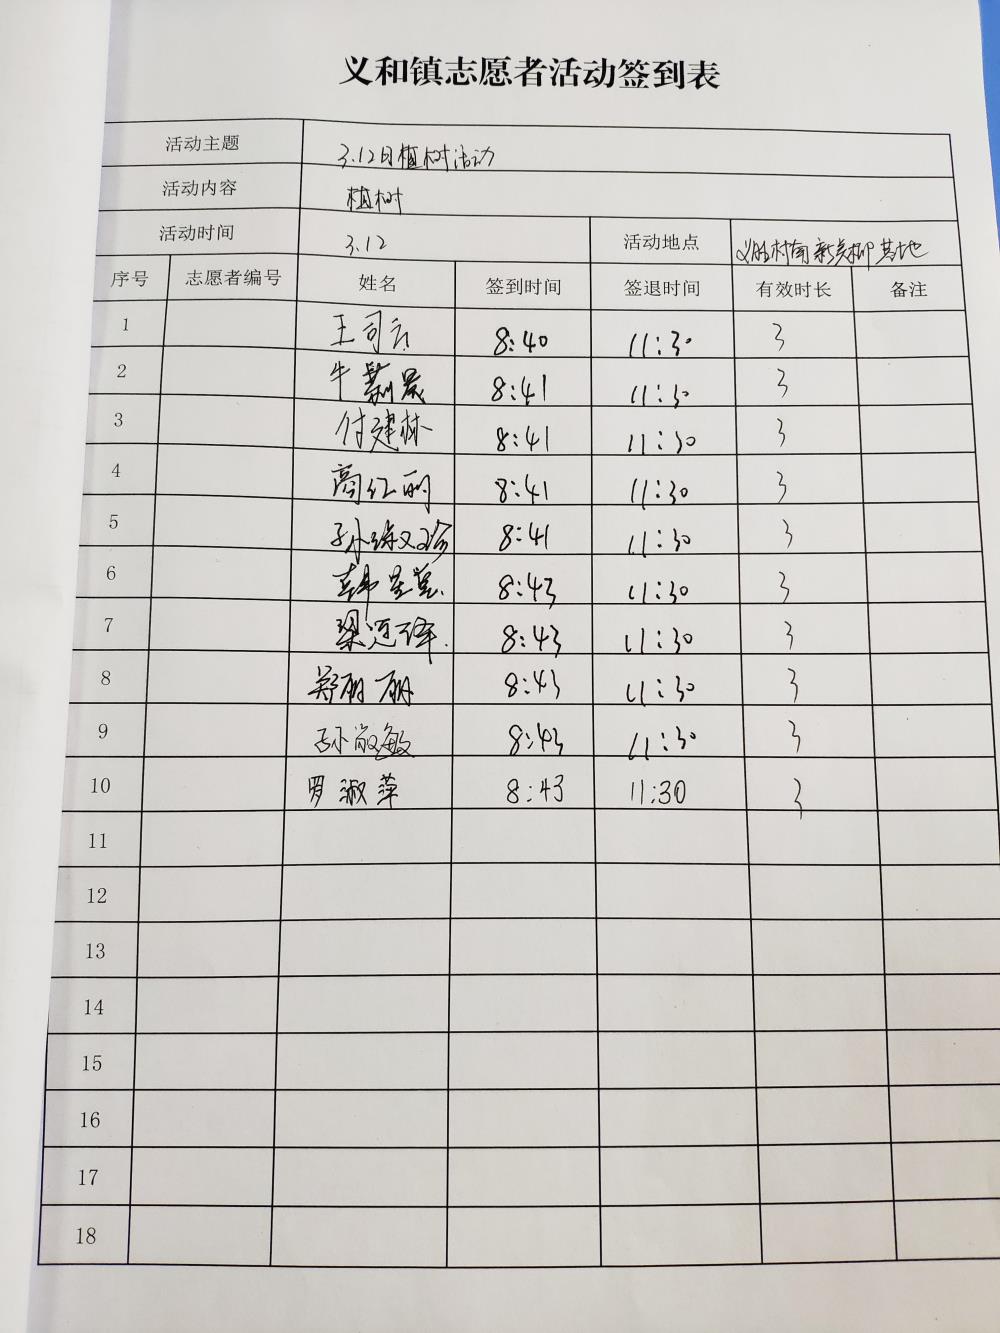 义和镇志愿者活动签到表
活动主题 3.12日植树活动
活动内容 植树
活动时间 3.12 活动地点 义胜村南新吴柳基地
序号 志愿者编号 姓名 签到时间 签退时间 有效时长 备注
1 王司云 8:40 11:30 3
2 牛 8:41 11:30 3
3 付建林 8:41 11:30 3
4 高红丽 8:41 11:30 3
5 孙 8:41 11:30 3
6 韩 8:43 11:30 3
7 梁迎锋 8:43 11:30 3
8 郑丽丽 8:43 11:30 3
9 孙敏敏 8:43 11:30 3
10 罗淑萍 8:43 11:30 3
11
12
13
14
15
16
17
18